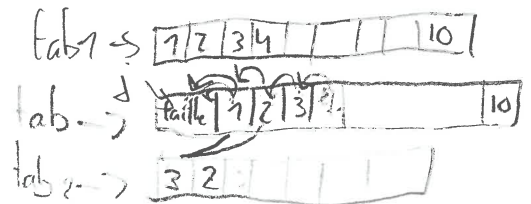 tab1 → 1 2 3 4 10
tab. → taille 1 2 3 10
tab2. → 3 2